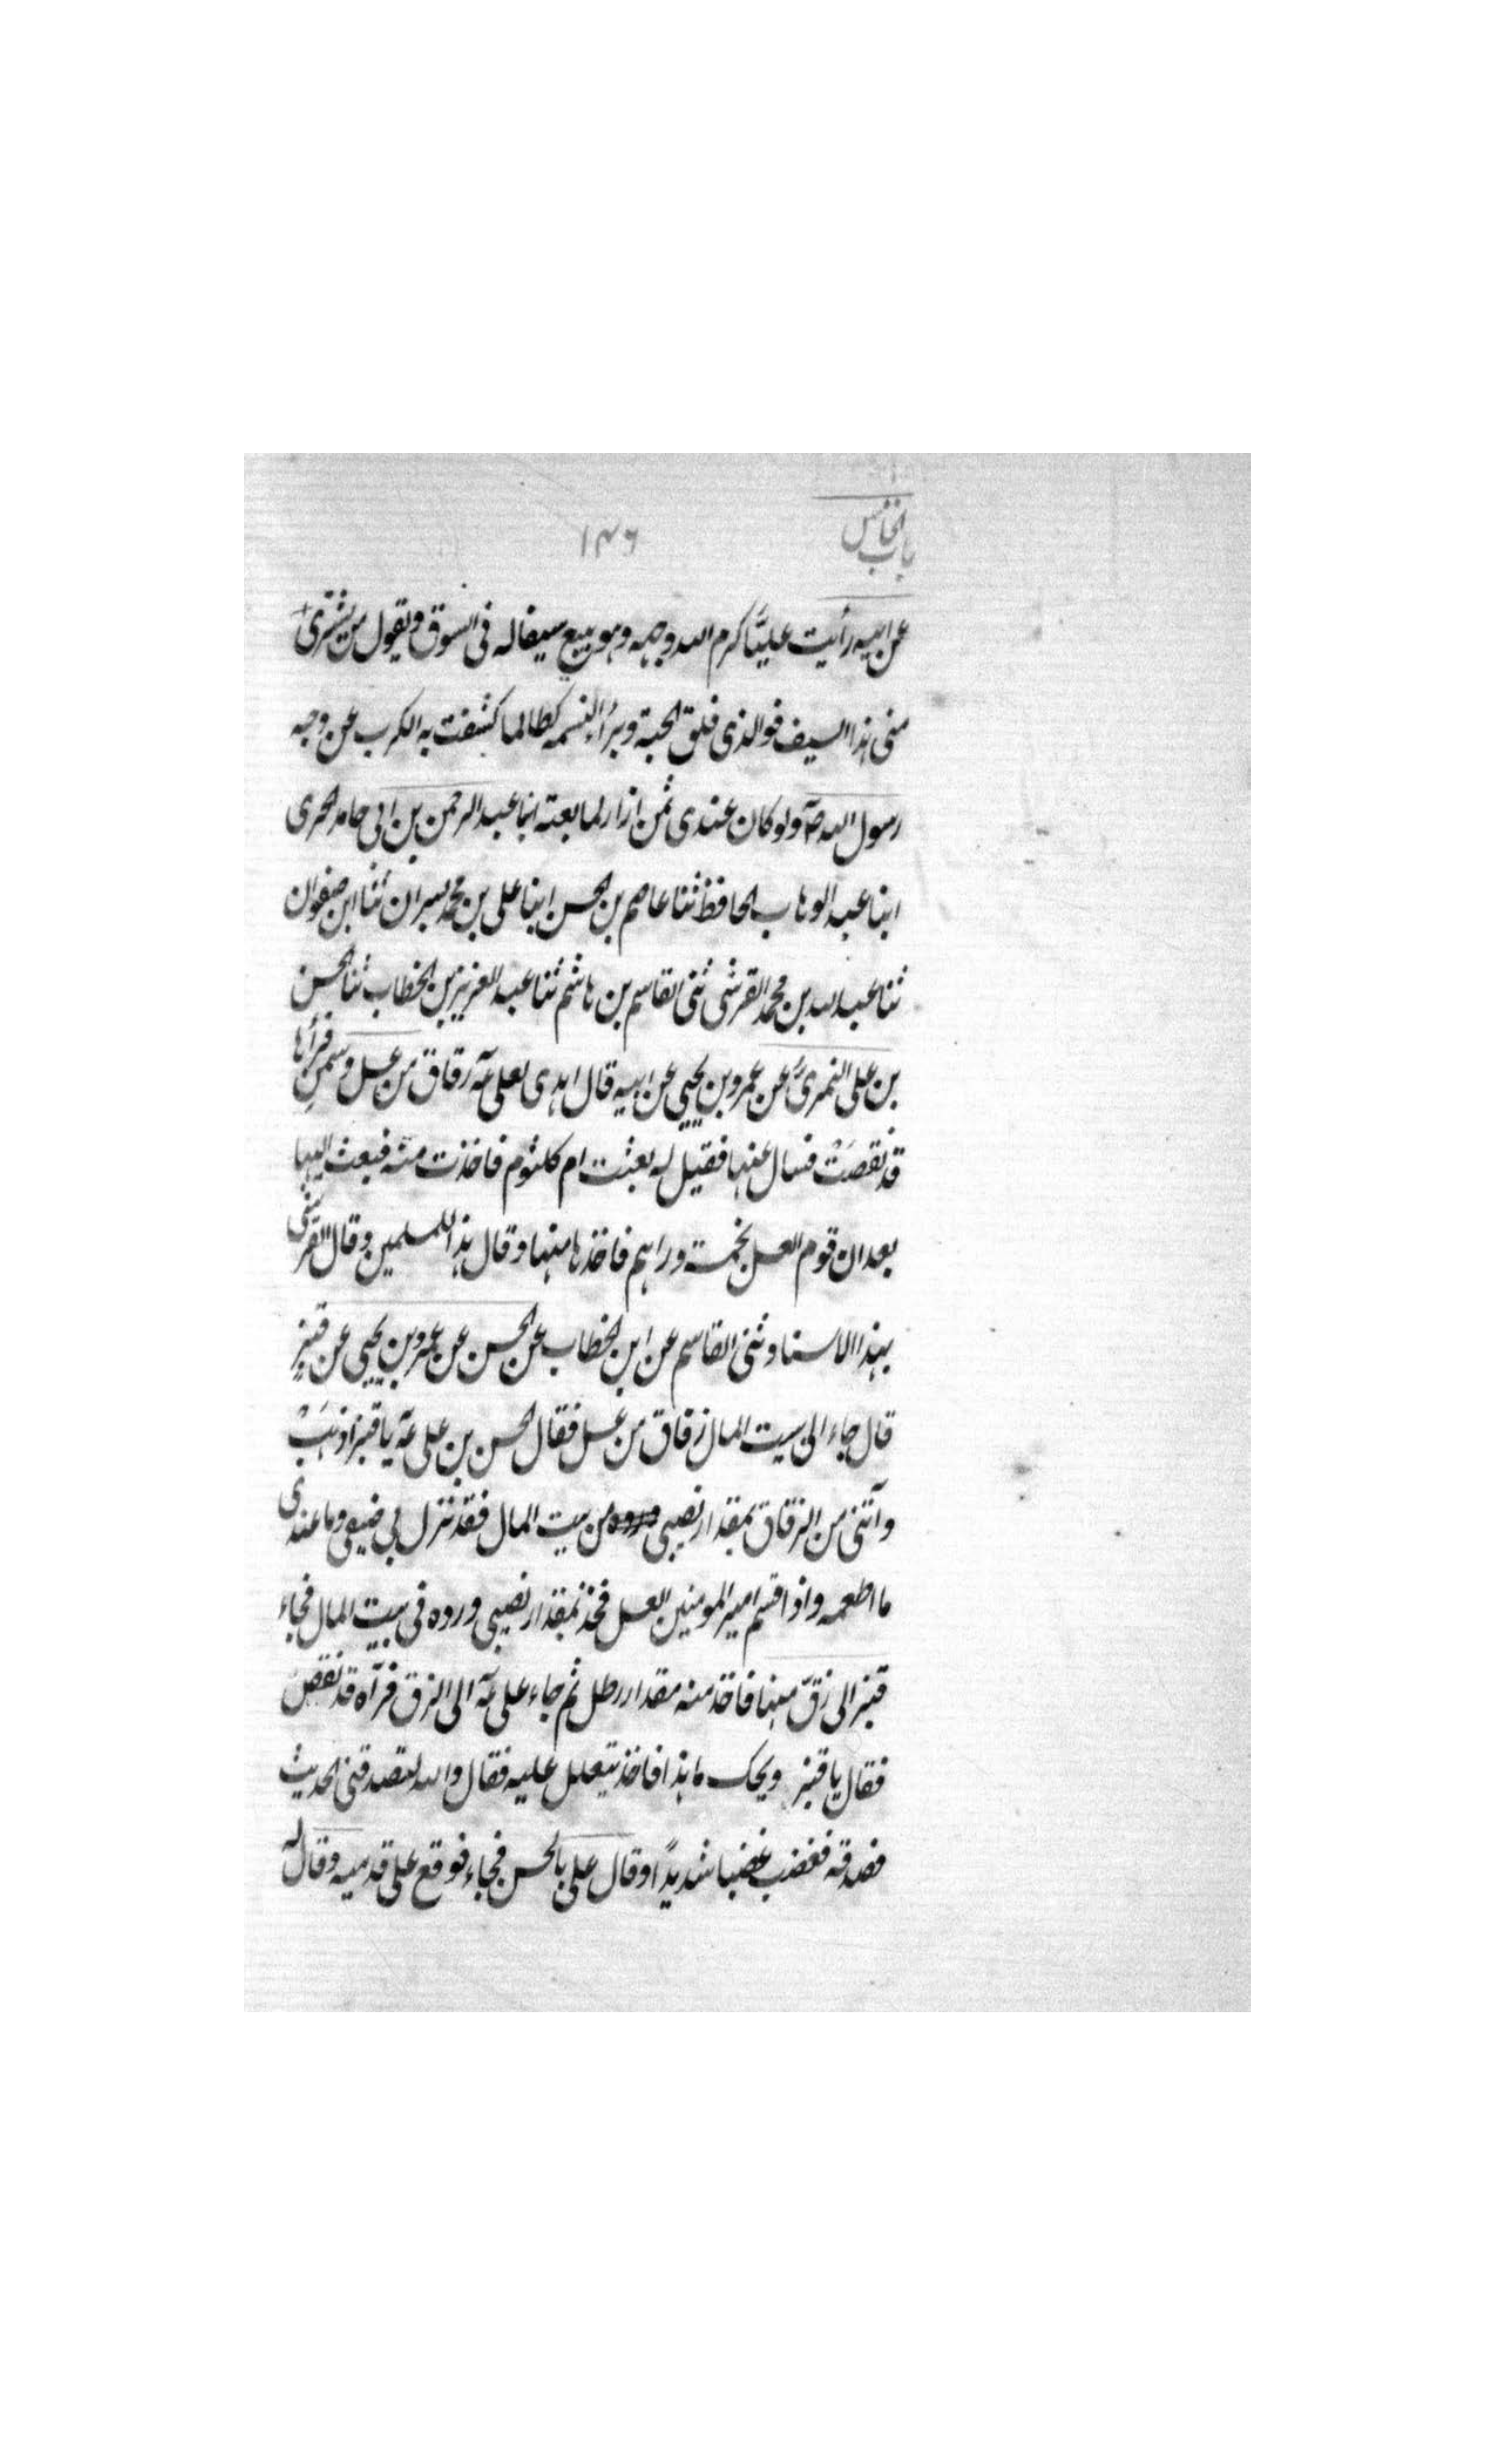 باب الخامس
١٣٦
عن ابيه رأيت عليًّا كرم الله وجهه وهو يبيع سيفا له فى السوق ويقول من يشترى
منى هذا السيف فوالذى فلق الحبة وبرأ النسمه لطالما كشفت به الكرب عن وجه
رسول الله صٓ ولو كان عندى ثمن ازار لما بعته انبا عبد الرحمن بن ابى حامد الحربى
ابنا عبد الوهاب الحافظ ثنا عاصم بن الحسن ابنا على بن محمد بسران ثنا ابن صفوان
ثنا عبد الله بن محمد القرشى ثنى القاسم بن هاشم ثنا عبد العزيز بن الخطاب ثنا الحسن
بن على النمرىّ عن عمرو بن يحيي عن ابيه قال اهدى لعلى عٓه زقاق من عسل وسمنٍ فرأها
قد نقصَتْ فسال عنها فقيل له بعثت ام كلثوم فاخذت منه فبعث اليها
بعد ان قوم العسل بخمسة دراهم فاخذها منها وقال هذا للمسلمين وقال القرشى
بهذا الاسناد ثنى القاسم عن ابن الخطاب عن الحسن عن عمرو بن يحيي عن قنبرٍ
قال جاء الى بيت المال زقاق من عسل فقال الحسن بن على عٓه يا قنبر اذهَبْ
وآتنى من الزقاق بمقدار نصيبى من بيت المال فقد نزل بى ضيف وما عندى
ما اطعمه واذا قسم امير المومنين العسل فخذ بمقدار نصيبى ورده فى بيت المال فجاء
قنبر الى زقّ منها فاخذ منه مقدار رطل ثم جاء على عٓه الى الزق فرآه قد نقصَ
فقال يا قنبر ويحك ما هذا فاخذ يتعلل عليه فقال والله لتصدقنى الحديث
فصدقه فغضب غضبا شديدًا وقال علي بالحسن فجاء فوقع على قدميه وقال له